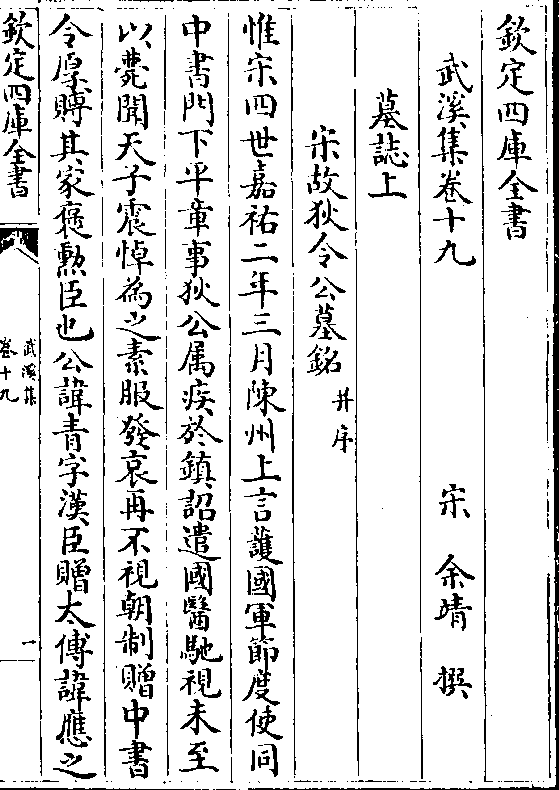 欽定四庫全書
武溪集卷十九
宋 余靖 撰
墓誌上
宋故狄令公墓銘并序
惟宋四世嘉祐二年三月陳州上言護國軍節度使同
中書門下平章事狄公属疾於鎮詔遣國醫馳視未至
以薨聞天子震悼為之素服發哀再不視朝制贈中書
令厚賻其家褒勲臣也公諱青字漢臣贈太傅諱應之
欽定四庫全書
武溪集
卷十九
一